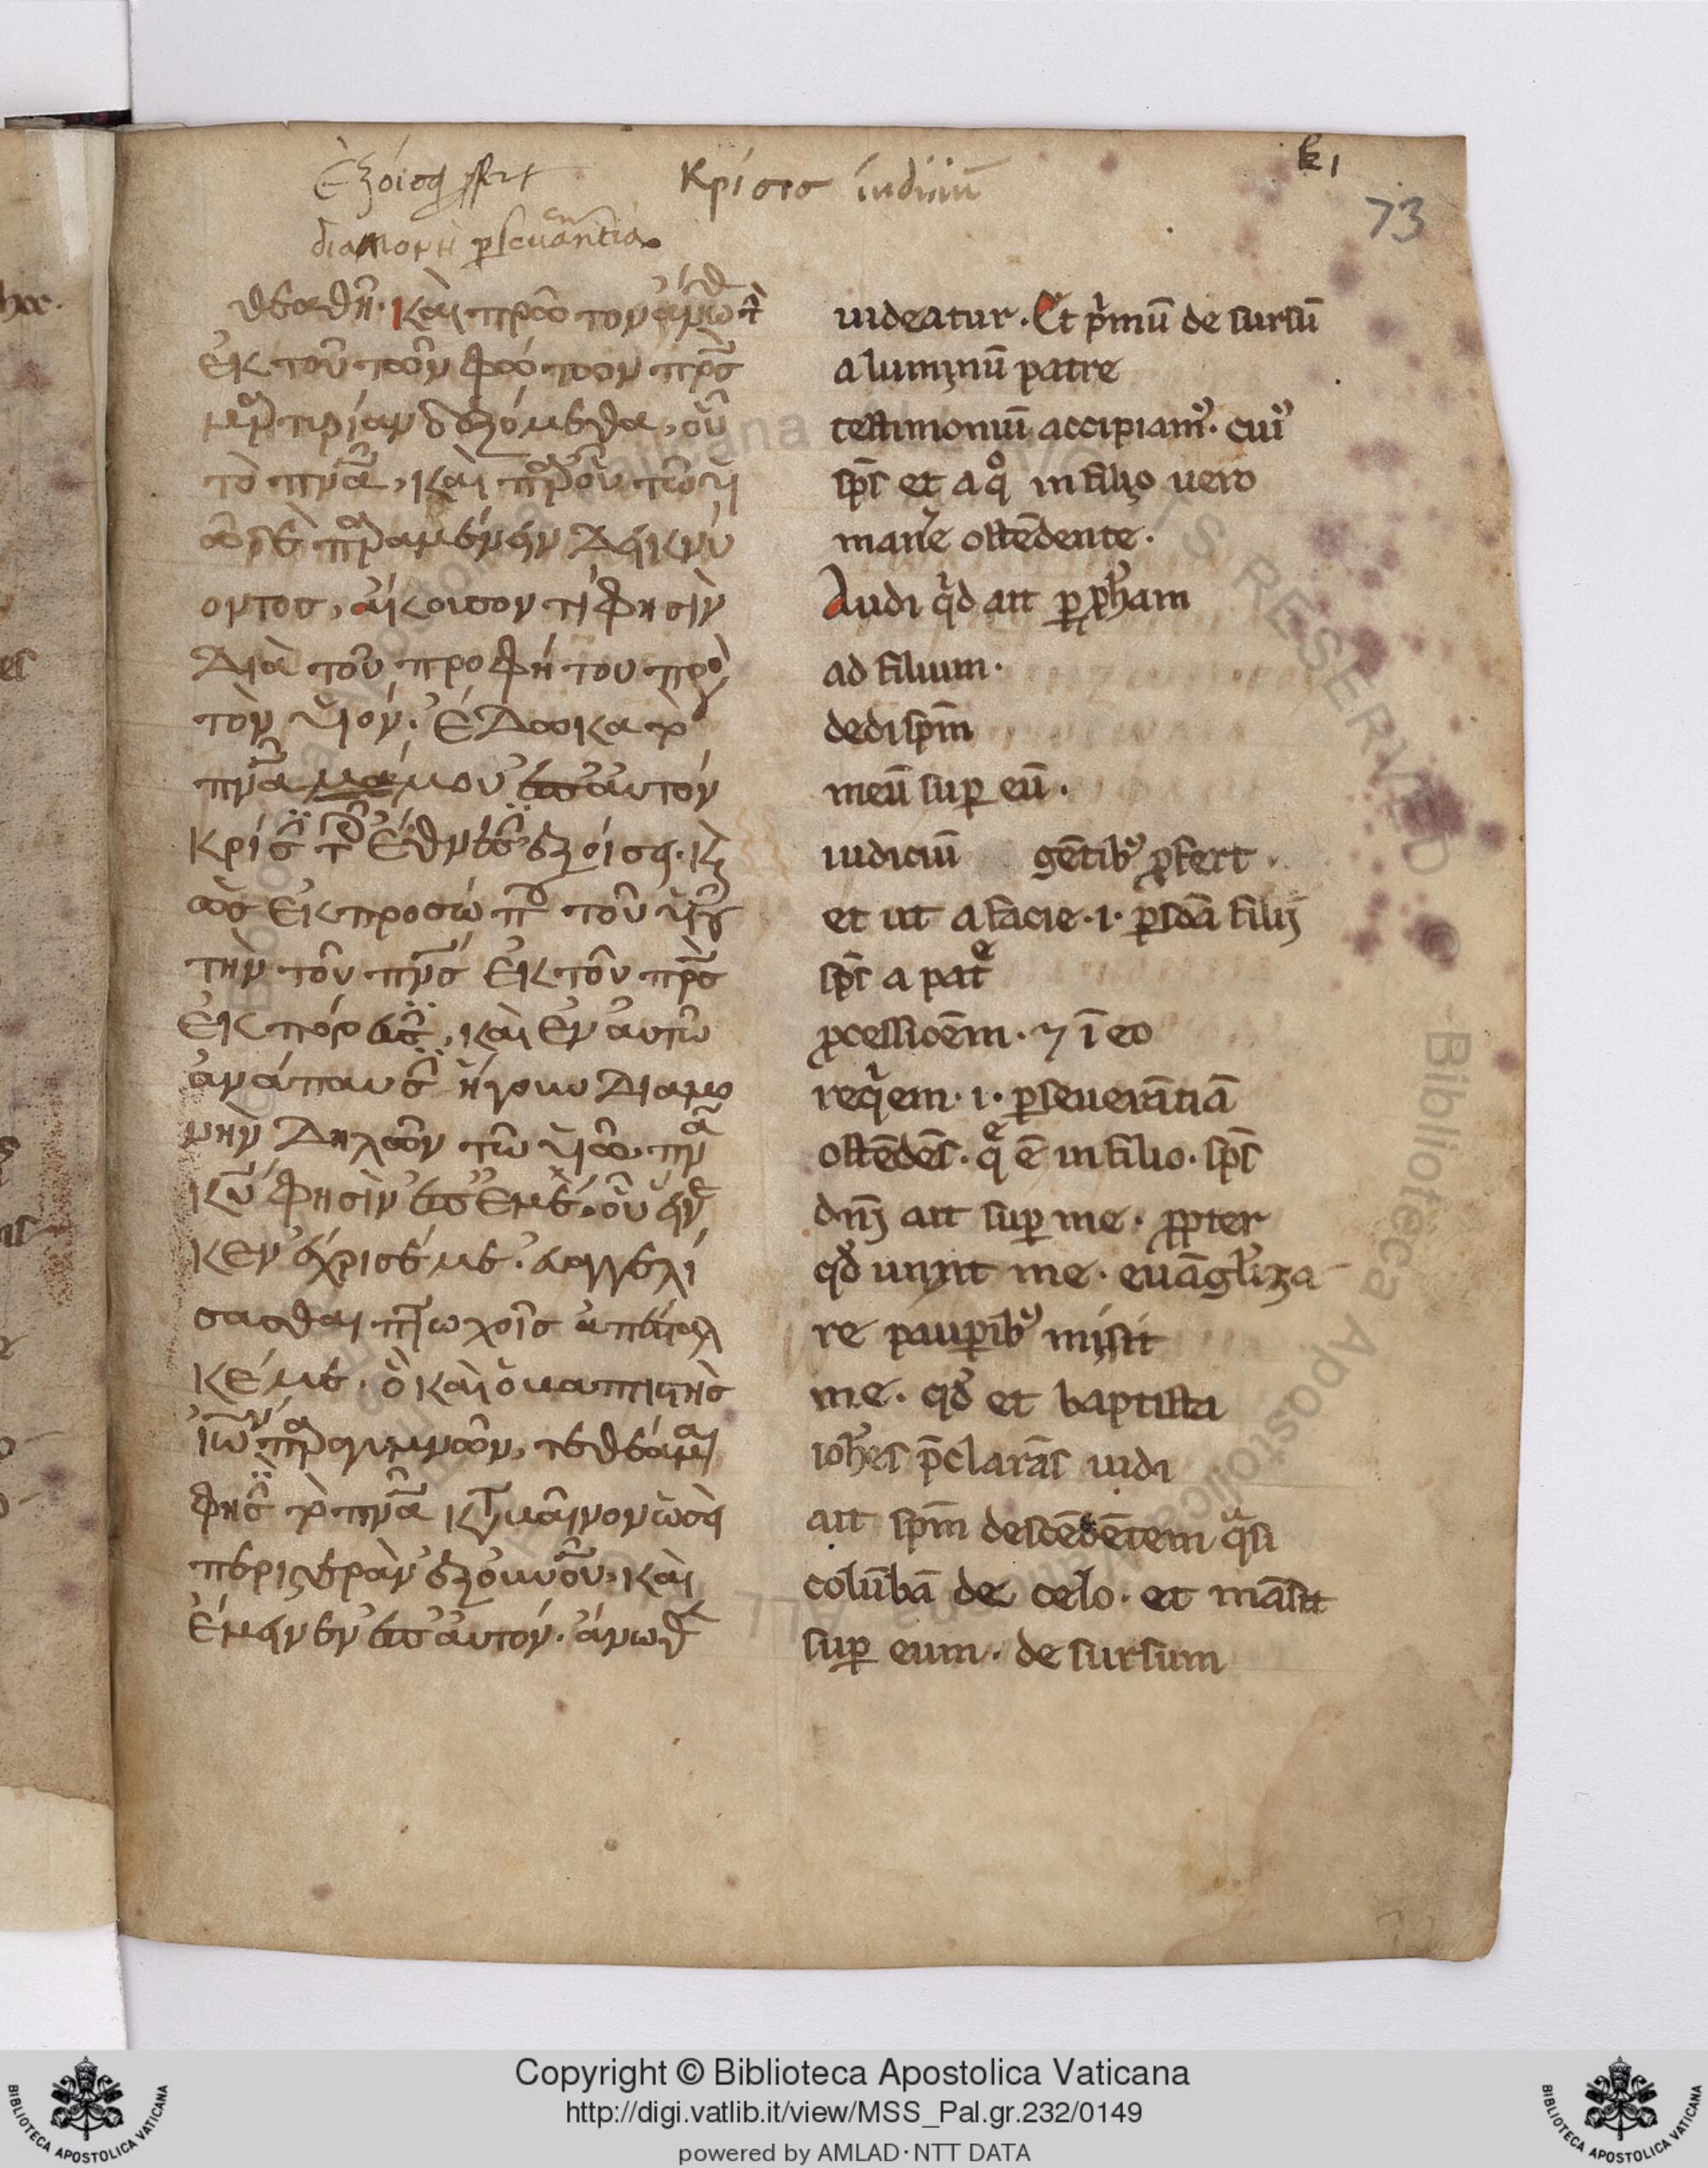 k1
73
ἐξοίσει ꝓfert κρίσις iudiciū
διαμονὴ ꝑseuerantia
θεαθῇ. καὶ πρῶτον ἄνωθεν
ἐκ τοῦ τῶν φώτων πρ̅ς
μαρτυρίαν δεξόμεθα, οὗ
τὸ πν̅α, καὶ παρ' οὗ τῶ υἱ
ῶ δὲ παραμένειν δεικνύ
οντος, ἄκουσον τί φησὶν
διὰ τοῦ προφήτου πρὸς
τὸν υἱόν. ἔδωκα τὸ
πν̅α μου ἐπ' αὐτόν
κρίσιν τοῖς ἔθνεσιν ἐξοίσει. καὶ
ὡς ἐκ προσώπου τοῦ υἱοῦ
τὴν τοῦ πν̅ς ἐκ τοῦ πρ̅ς
ἐκπόρευσιν, καὶ ἐν αὐτῶ
ἀνάπαυσιν ἤγουν διαμο
νὴν δηλῶν τῶ υἱῶ. πν̅α
κ̅υ φησὶν ἐπ' ἐμέ. οὗ εἵνε
κεν ἔχρισέ με. εὐαγγελί
σασθαι πτωχοῖς ἀπέσταλ
κέ με. ὃ καὶ ὁ βαπτιστὴς
ἰω̅ν παραγυμνῶν, τεθέαμαι
φησὶ τὸ πν̅α καταβαῖνον ὡσεὶ
περιστερὰν ἐξ οὐρανοῦ. καὶ
ἔμεινεν ἐπ' αὐτόν. ἄνωθεν
uideatur. Et p̍mū de sursū
a luminū patre
testimoniū accipiamꝰ. cuiꝰ
sp̄s et a qͦ in filio uero
manere ostēdente.
Audi qͥd ait ꝑ ꝓph̄am
ad filium.
dedi sp̄m
meū suꝑ eū.
iudiciū gētibꝰ ꝓfert.
et ut a facie .i. ꝑsōa filij
sp̄s a patͤ
ꝓcessioēm. ⁊ ī eo
reqͥem .i. ꝑseuerātiā
ostēdēs. qͤ ē in filio. sp̄s
dn̄j ait suꝑ me. ꝓpter
qd̓ unxit me. euāgl̓iza
re pauꝑibꝰ misit
me. qd̓ et baptista
ioh̓es p̄clarās uidi
ait sp̄m descēdētem qͣsi
colūbā de celo. et māsit
suꝑ eum. de sursum
Copyright © Biblioteca Apostolica Vaticana
http://digi.vatlib.it/view/MSS_Pal.gr.232/0149
powered by AMLAD·NTT DATA
BIBLIOTECA APOSTOLICA VATICANA
BIBLIOTECA APOSTOLICA VATICANA